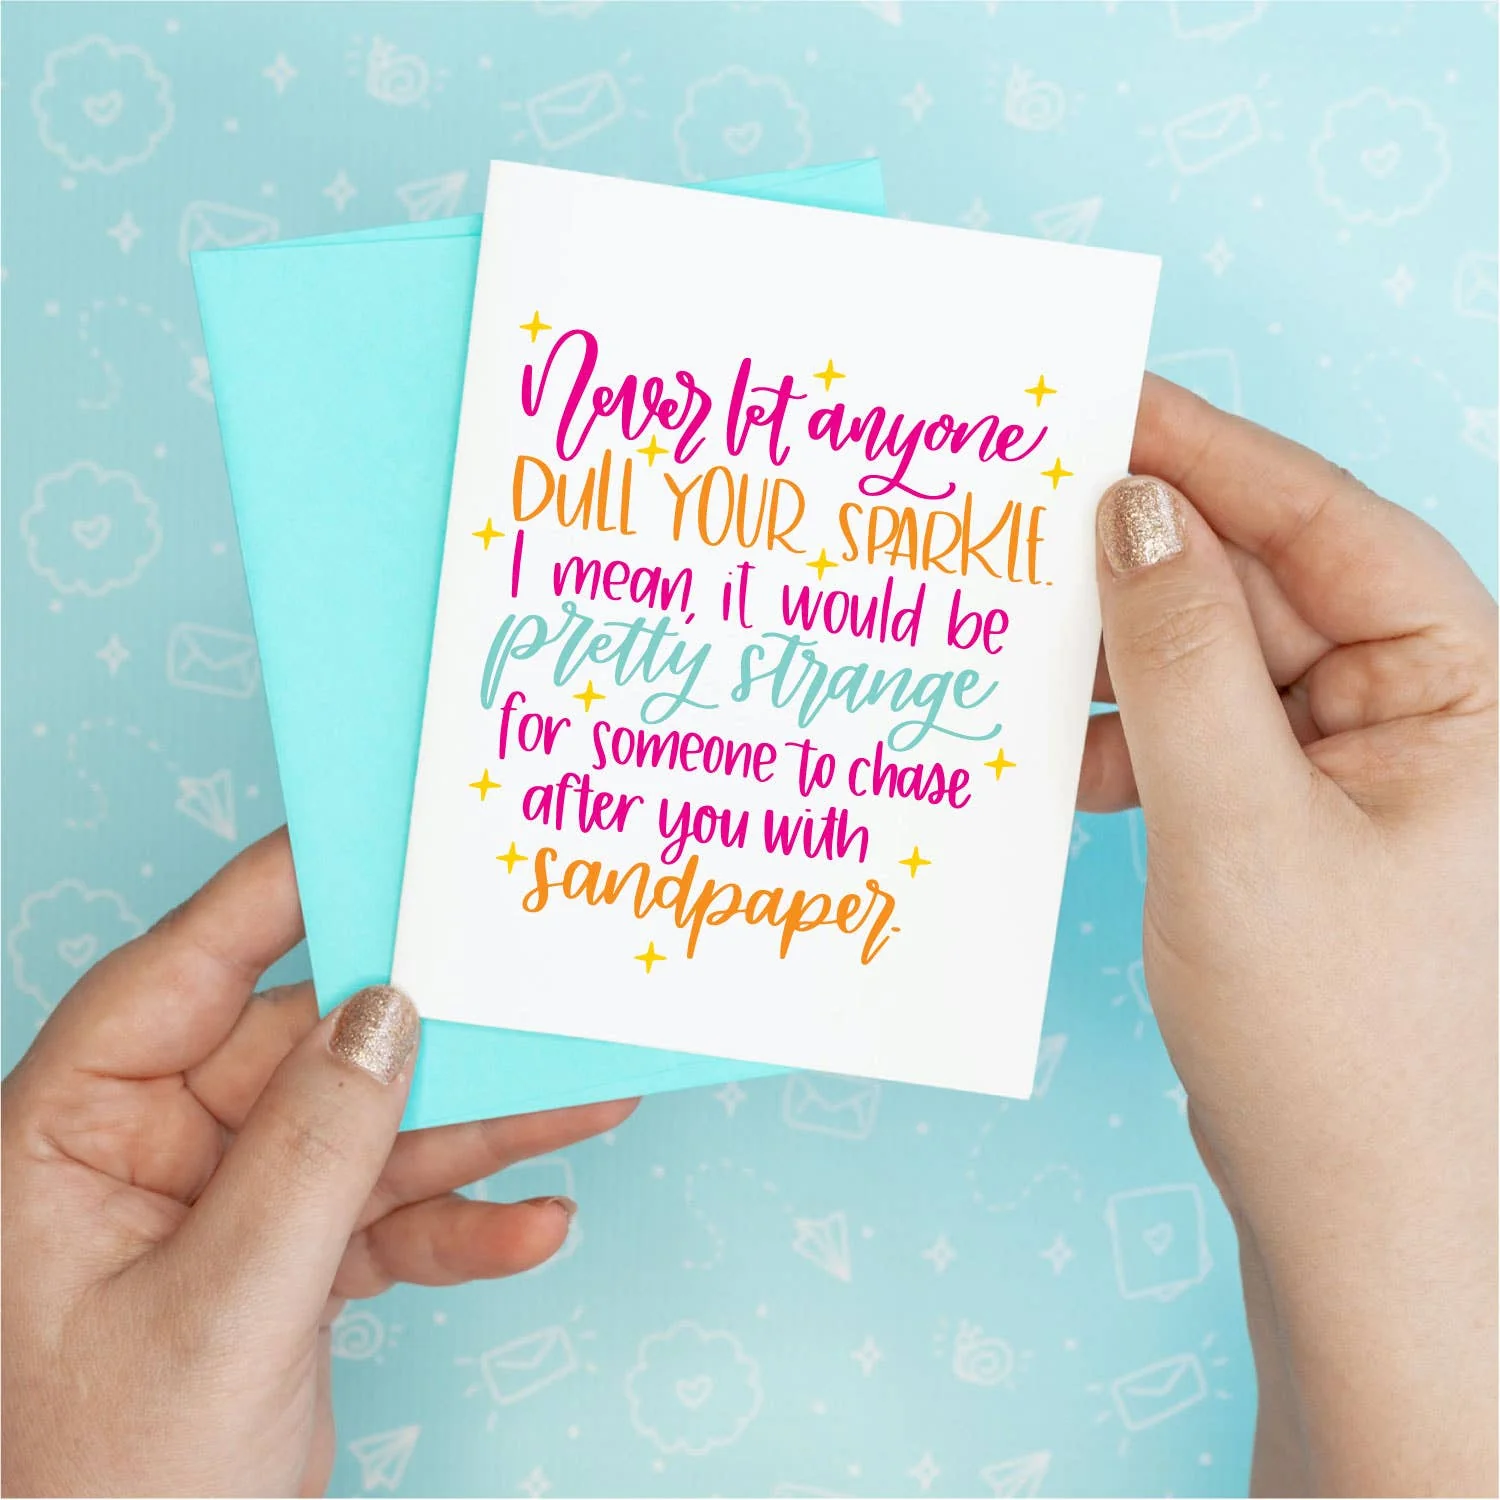 Never let anyone
DULL YOUR SPARKLE.
I mean, it would be
pretty strange
for someone to chase
after you with
sandpaper.